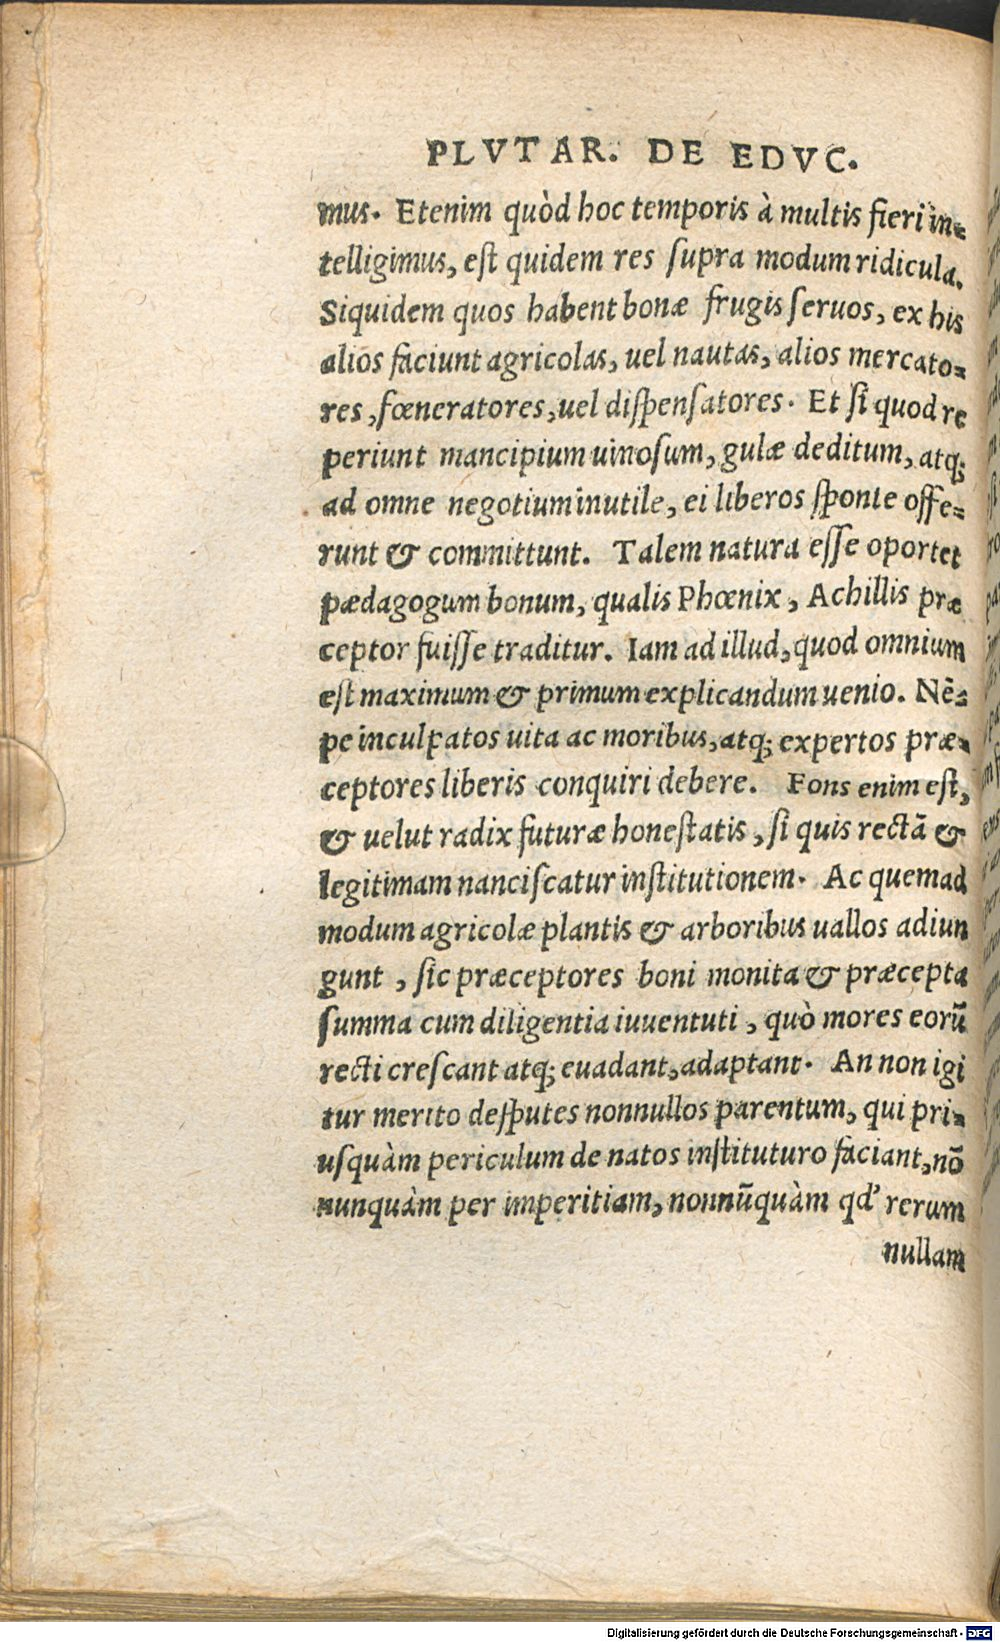 PLVTAR. DE EDVC.
mus. Etenim quòd hoc temporis à multis fieri in-
telligimus, est quidem res supra modum ridicula.
Siquidem quos habent bonæ frugis seruos, ex his
alios faciunt agricolas, uel nautas, alios mercato-
res, fœneratores, uel dispensatores. Et si quod re
periunt mancipium uinosum, gulæ deditum, atq;
ad omne negotium inutile, ei liberos sponte offe-
runt & committunt. Talem natura esse oportet
pædagogum bonum, qualis Phœnix, Achillis præ
ceptor fuisse traditur. Iam ad illud, quod omnium
est maximum & primum explicandum uenio. Nē-
pe inculpatos uita ac moribus, atq; expertos præ-
ceptores liberis conquiri debere. Fons enim est,
& uelut radix futuræ honestatis, si quis rectā &
legitimam nanciscatur institutionem. Ac quemad
modum agricolæ plantis & arboribus uallos adiun
gunt, sic præceptores boni monita & præcepta
summa cum diligentia iuuentuti, quò mores eorū
recti crescant atq; euadant, adaptant. An non igi
tur merito desputes nonnullos parentum, qui pri-
usquàm periculum de natos instituturo faciant, nō
nunquàm per imperitiam, nonnūquàm qd' rerum
nullam
Digitalisierung gefördert durch die Deutsche Forschungsgemeinschaft - DFG